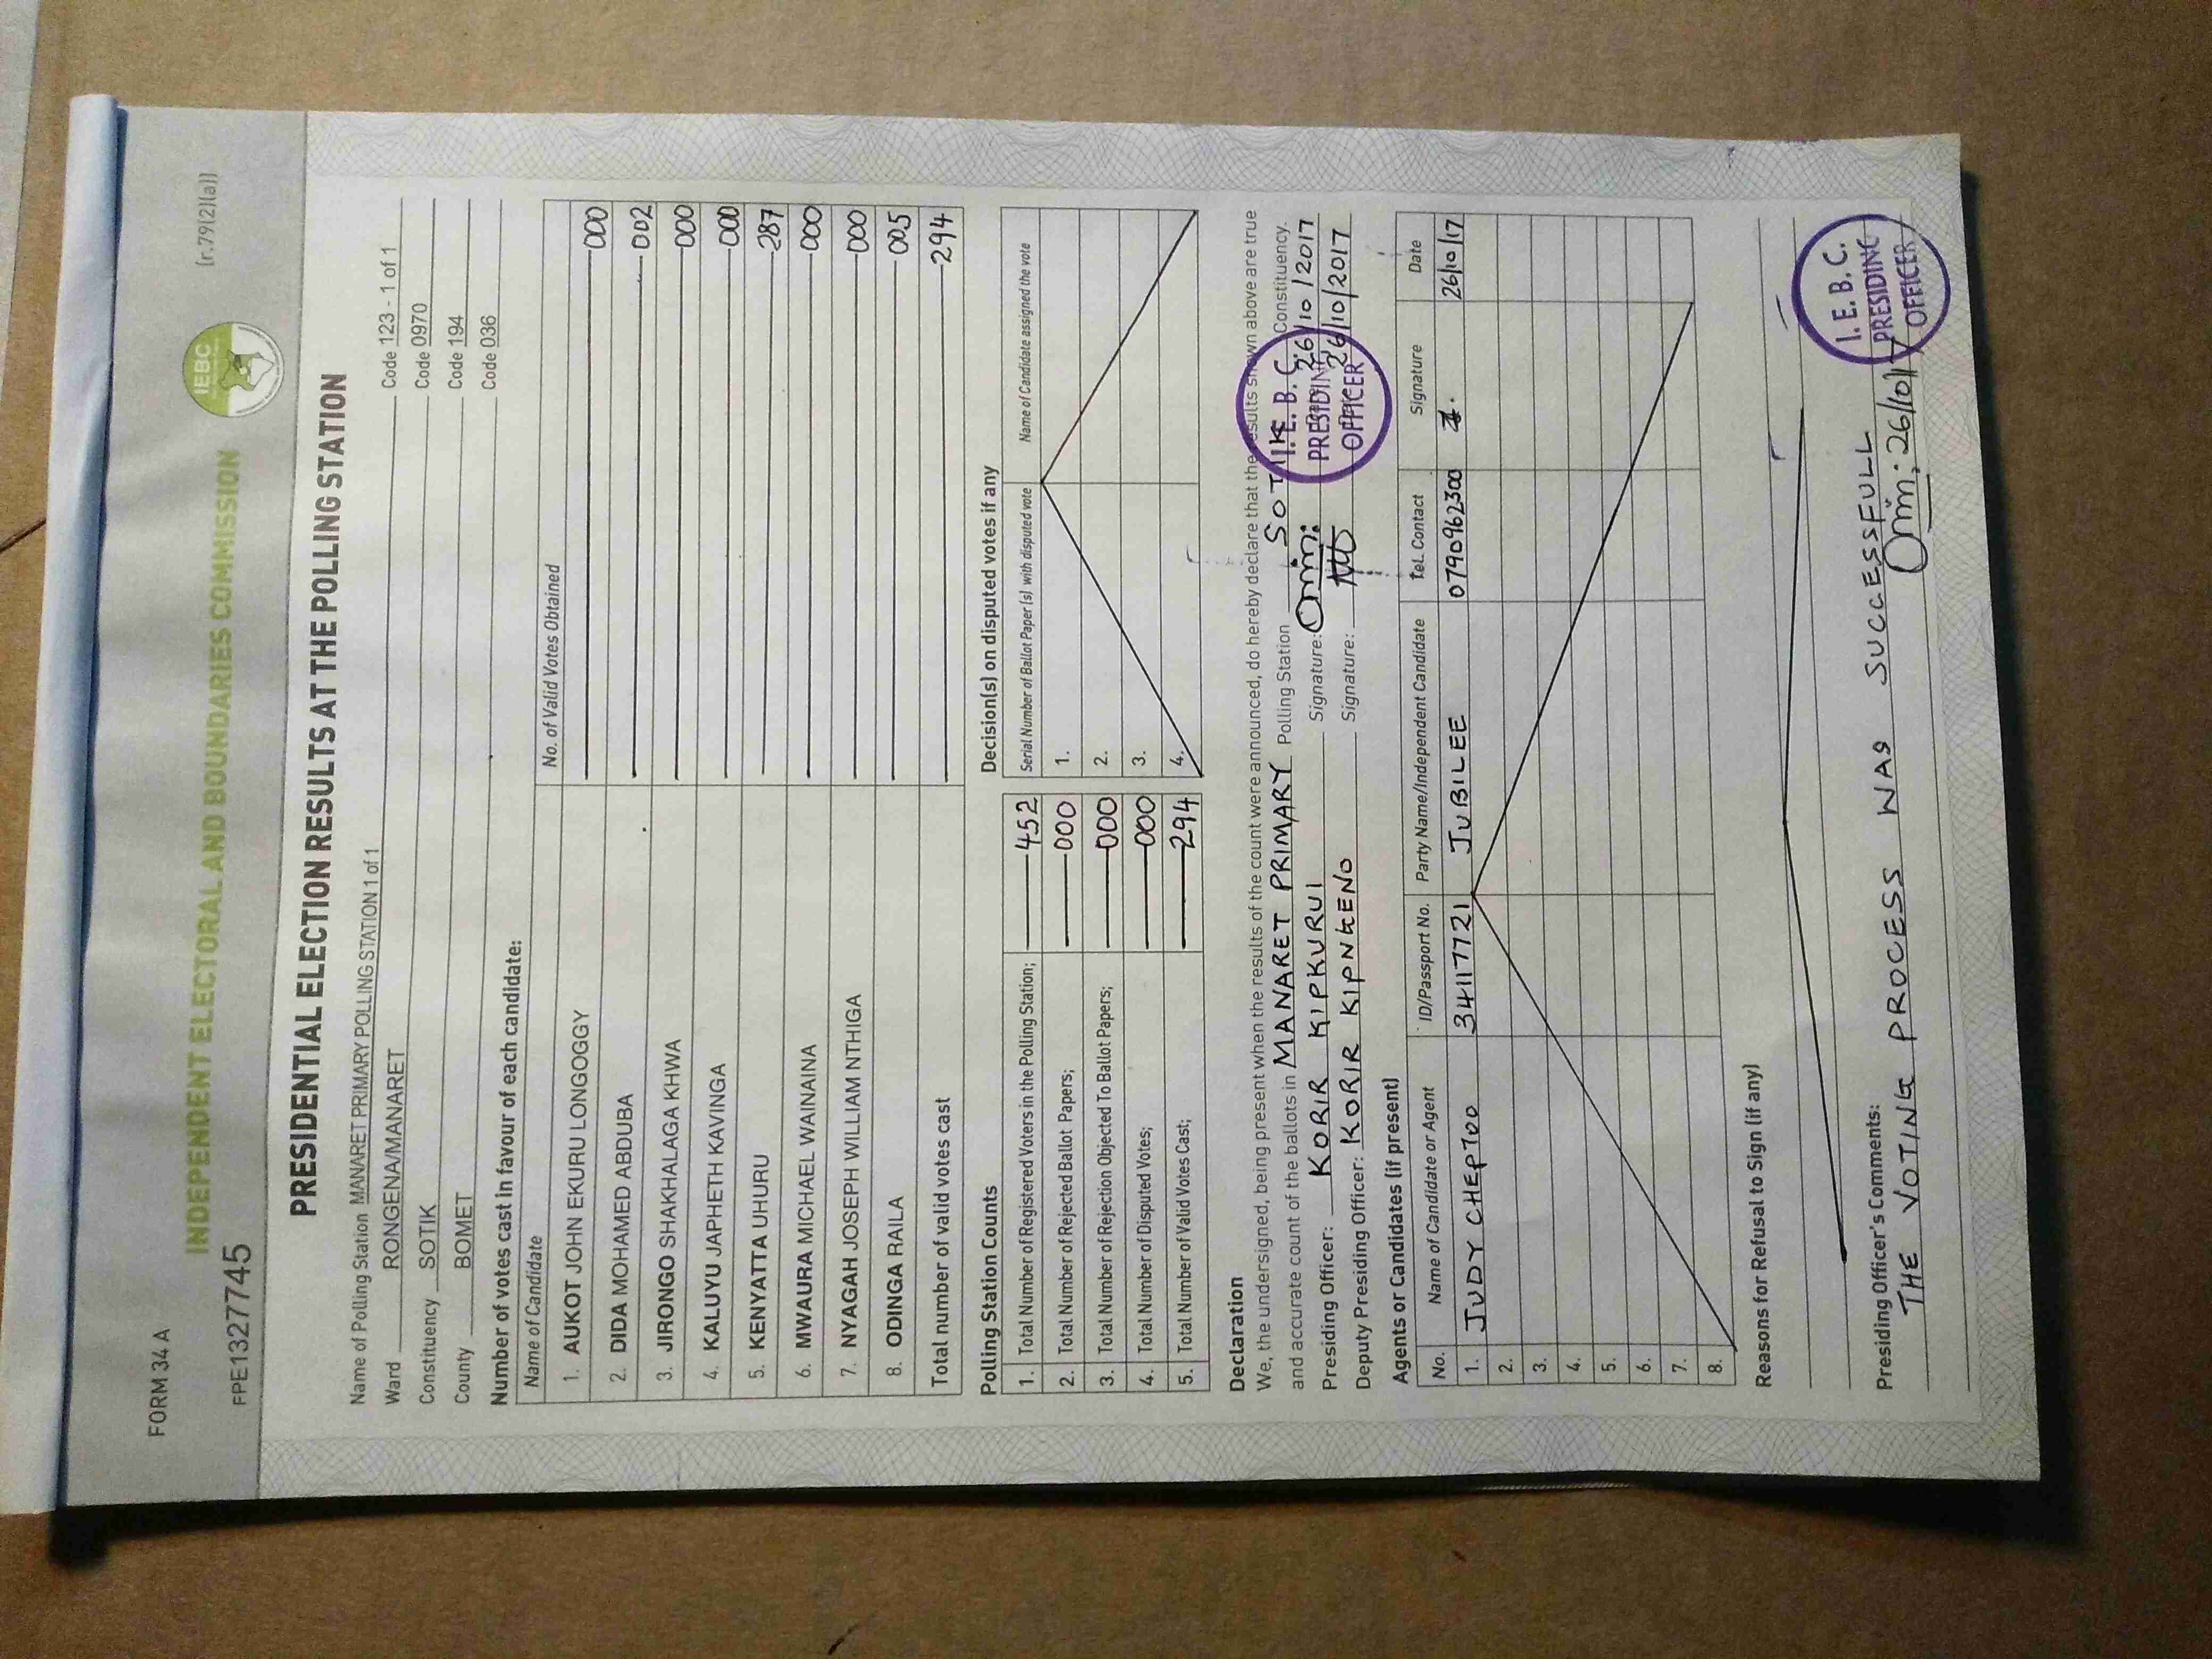 FORM 34 A
[r.79(2)(a)]
INDEPENDENT ELECTORAL AND BOUNDARIES COMMISSION
IEBC
FPE1327745
PRESIDENTIAL ELECTION RESULTS AT THE POLLING STATION
Name of Polling Station MANARET PRIMARY POLLING STATION 1 of 1 Code 123 - 1 of 1
Ward RONGENA/MANARET Code 0970
Constituency SOTIK Code 194
County BOMET Code 036
Number of votes cast in favour of each candidate:
Name of Candidate No. of Valid Votes Obtained
1. AUKOT JOHN EKURU LONGOGGY 000
2. DIDA MOHAMED ABDUBA 002
3. JIRONGO SHAKHALAGA KHWA 000
4. KALUYU JAPHETH KAVINGA 000
5. KENYATTA UHURU 287
6. MWAURA MICHAEL WAINAINA 000
7. NYAGAH JOSEPH WILLIAM NTHIGA 000
8. ODINGA RAILA 005
Total number of valid votes cast 294
Polling Station Counts
1. Total Number of Registered Voters in the Polling Station; 452
2. Total Number of Rejected Ballot Papers; 000
3. Total Number of Rejection Objected To Ballot Papers; 000
4. Total Number of Disputed Votes; 000
5. Total Number of Valid Votes Cast; 294
Decision(s) on disputed votes if any
Serial Number of Ballot Paper(s) with disputed vote Name of Candidate assigned the vote
1.
2.
3.
4.
Declaration
We, the undersigned, being present when the results of the count were announced, do hereby declare that the results shown above are true
and accurate count of the ballots in MANARET PRIMARY Polling Station SOTIK Constituency.
Presiding Officer: KORIR KIPKURUI Signature: 26/10/2017
Deputy Presiding Officer: KORIR KIPNGENO Signature: 26/10/2017
I. E. B. C.
PRESIDING
OFFICER
Agents or Candidates (if present)
No. Name of Candidate or Agent ID/Passport No. Party Name/Independent Candidate Tel. Contact Signature Date
1. JUDY CHEPTOO 34117721 JUBILEE 0790962300 26/10/17
2.
3.
4.
5.
6.
7.
8.
Reasons for Refusal to Sign (if any)
Presiding Officer's Comments:
THE VOTING PROCESS WAS SUCCESSFULL
26/10/17
I. E. B. C.
PRESIDING
OFFICER